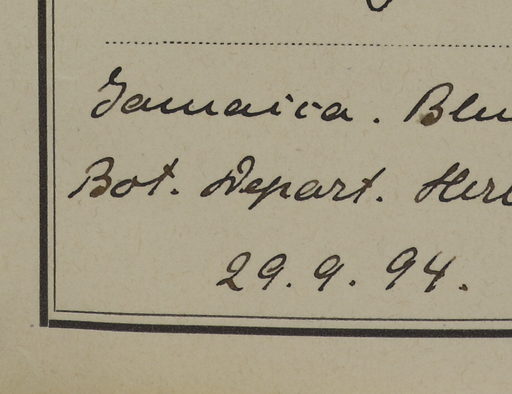 Jamaica. Blu
Bot. Depart. Her
29. 9. 94.